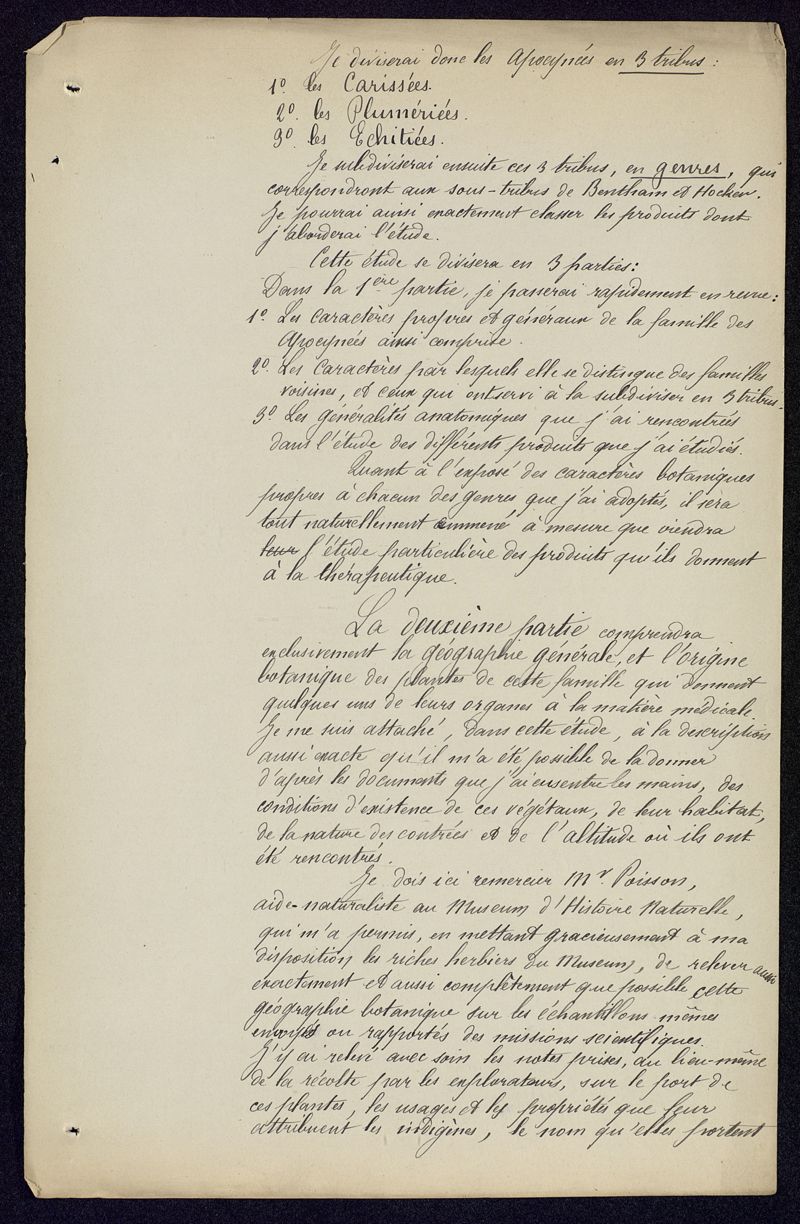 Je diviserai donc les Apocynées en 3 tribus :
1º. les Carissées.
2º. les Plumériées.
3º. les Echitiées.
Je subdiviserai ensuite ces 3 tribus, en genres, qui
correspondront aux sous-tribus de Bentham et Hooker.
Je pourrai ainsi exactement classer les produits dont
j'aborderai l'étude.
Cette étude se divisera en 3 parties :
Dans la 1ère partie, je passerai rapidement en revue :
1º. Les caractères propres et généraux de la famille des
Apocynées ainsi comprise.
2º. Les caractères par lesquels elle se distingue des familles
voisines, et ceux qui ont servi à la subdiviser en 3 tribus.
3º Les généralités anatomiques que j'ai rencontrées
dans l'étude des différents produits que j'ai étudiés.
Quant à l'exposé des caractères botaniques
propres à chacun des genres que j'ai adoptés, il sera
tout naturellement emmené à mesure que viendra
leur l'étude particulière des produits qu'ils donnent
à la thérapeutique.
La deuxième partie comprendra
exclusivement la géographie générale, et l'origine
botanique des plantes de cette famille qui donnent
quelques uns de leurs organes à la matière médicale.
Je me suis attaché, dans cette étude, à la description
aussi exacte qu'il m'a été possible de la donner
d'après les documents que j'ai eus entre les mains, des
conditions d'existence de ces végétaux, de leur habitat,
de la nature des contrées et de l'altitude où ils ont
été rencontrés.
Je dois ici remercier Mr. Poisson,
aide-naturaliste au Museum d'Histoire Naturelle,
qui m'a permis, en mettant gracieusement à ma
disposition les riches herbiers du Museum, de relever aussi
exactement et aussi complètement que possible cette
géographie botanique sur les échantillons mêmes
envoyés ou rapportés des missions scientifiques.
J'y ai relevé avec soin les notes prises, au lieu-même
de la récolte par les explorateurs, sur le port de
ces plantes, les usages et les propriétés que leur
attribuent les indigènes, le nom qu'elles portent